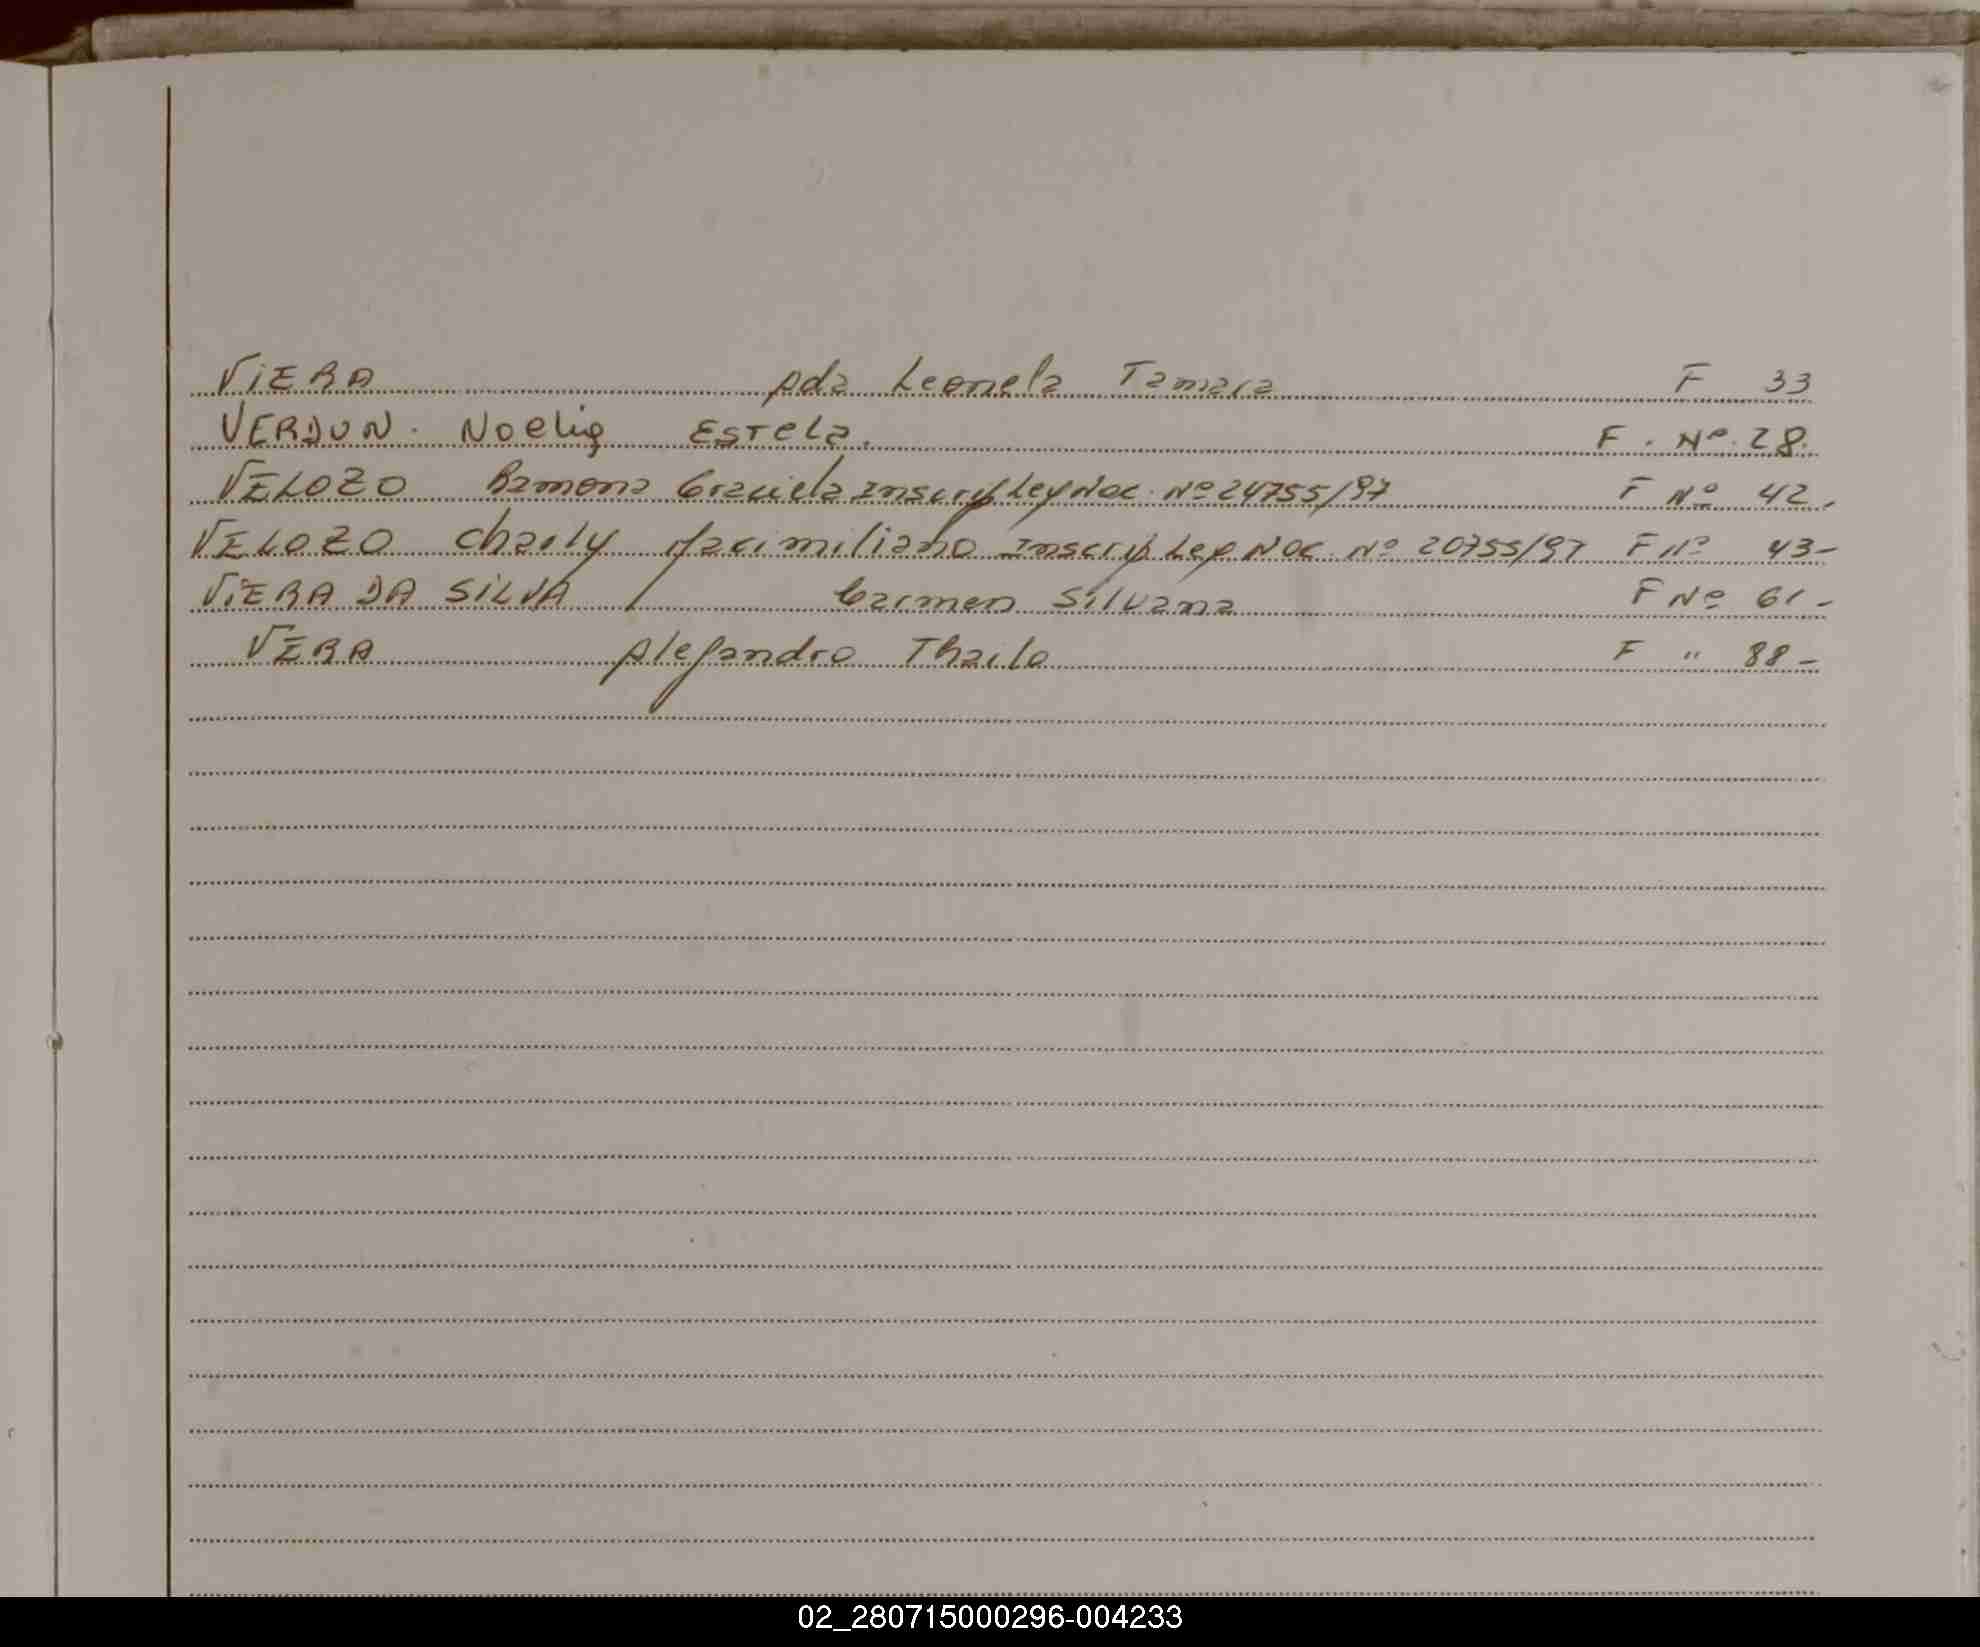 VIERA Ada Leonela Tamara F 33
VERDUN. Noelia ESTELA. F. Nº. 28.
VELOZO Ramona Graciela Inscrip Ley Nac. Nº 24755/97 F Nº 42.
VELOZO Charly Maximiliano Inscrip Ley Nac. Nº 20755/97 F Nº 43-
VIERA DA SILVA Carmen Silvana F Nº 61-
VERA Alejandro F " 88-
02_280715000296-004233